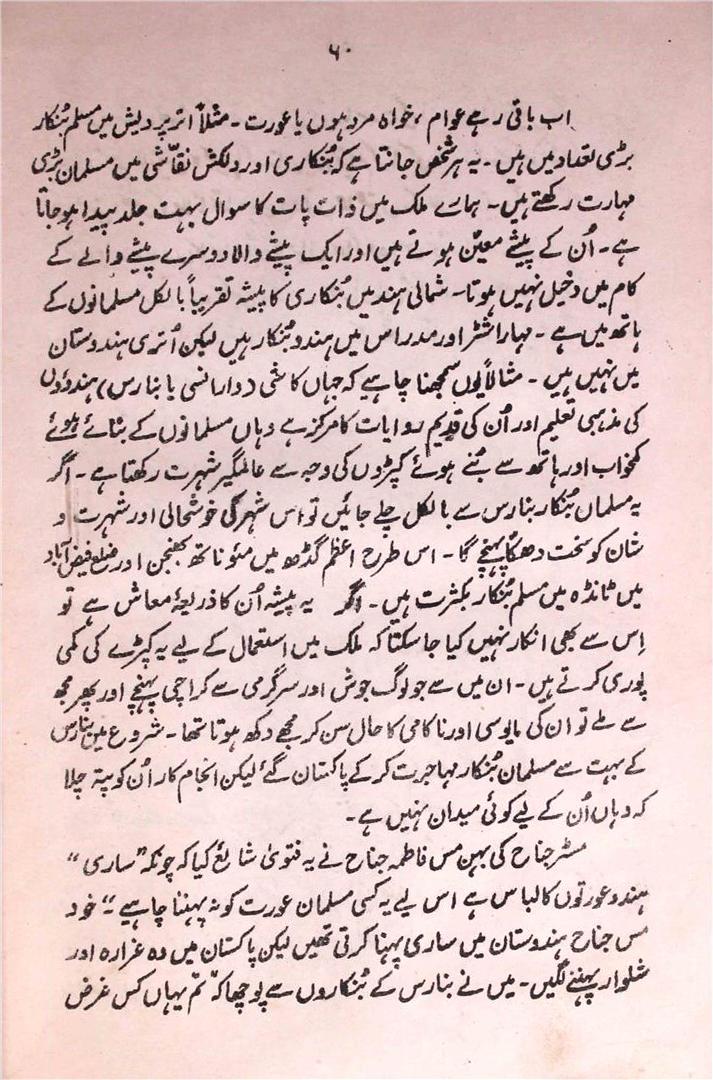 ۶۰
اب باقی رہے عوام، خواہ مرد ہوں یا عورت۔ مثلاً اتر پردیش میں مسلم بُنکار
بڑی تعداد میں ہیں۔ یہ ہر شخص جانتا ہے کہ بُنکاری اور دلکش نقّاشی میں مسلمان بڑی
مہارت رکھتے ہیں۔ ہمارے ملک میں ذات پات کا سوال بہت جلد پیدا ہو جاتا
ہے۔ اُن کے پیشے معیّن ہوتے ہیں اور ایک پیشے والا دوسرے پیشے والے کے
کام میں دخیل نہیں ہوتا۔ شمالی ہند میں بُنکاری کا پیشہ تقریباً بالکل مسلمانوں کے
ہاتھ میں ہے۔ مہاراشٹر اور مدراس میں ہندو بُنکار ہیں لیکن اُتری ہندوستان
میں نہیں ہیں۔ مثالاً یوں سمجھنا چاہیے کہ جہاں کاشی (وارانسی یا بنارس) ہندوؤں
کی مذہبی تعلیم اور اُن کی قدیم روایات کا مرکز ہے وہاں مسلمانوں کے بنائے ہوئے
کمخواب اور ہاتھ سے بُنے ہوئے کپڑوں کی وجہ سے عالمگیر شہرت رکھتا ہے۔ اگر
یہ مسلمان بُنکار بنارس سے بالکل چلے جائیں تو اس شہر کی خوشحالی اور شہرت و
شان کو سخت دھکا پہنچے گا۔ اس طرح اعظم گڈھ میں مئوناتھ بھنجن اور ضلع فیض آباد
میں ٹانڈہ میں مسلم بُنکار بکثرت ہیں۔ اگر یہ پیشہ اُن کا ذریعۂ معاش ہے تو
اِس سے بھی انکار نہیں کیا جا سکتا کہ ملک میں استعمال کے لیے یہ کپڑے کی کمی
پوری کرتے ہیں۔ ان میں سے جو لوگ جوش اور سرگرمی سے کراچی پہنچے اور پھر مجھ
سے ملے تو ان کی مایوسی اور ناکامی کا حال سن کر مجھے دکھ ہوتا تھا۔ شروع میں بنارس
کے بہت سے مسلمان بُنکار مہاجرت کر کے پاکستان گئے لیکن انجام کار اُن کو پتہ چلا
کہ وہاں اُن کے لیے کوئی میدان نہیں ہے۔
مسٹر جناح کی بہن مس فاطمہ جناح نے یہ فتویٰ شایع کیا کہ چونکہ "ساری"
ہندو عورتوں کا لباس ہے اس لیے یہ کسی مسلمان عورت کو نہ پہننا چاہیے"۔ خود
مس جناح ہندوستان میں ساری پہنا کرتی تھیں لیکن پاکستان میں وہ غرارہ اور
شلوار پہننے لگیں۔ میں نے بنارس کے بُنکاروں سے پوچھا کہ "تم یہاں کس غرض